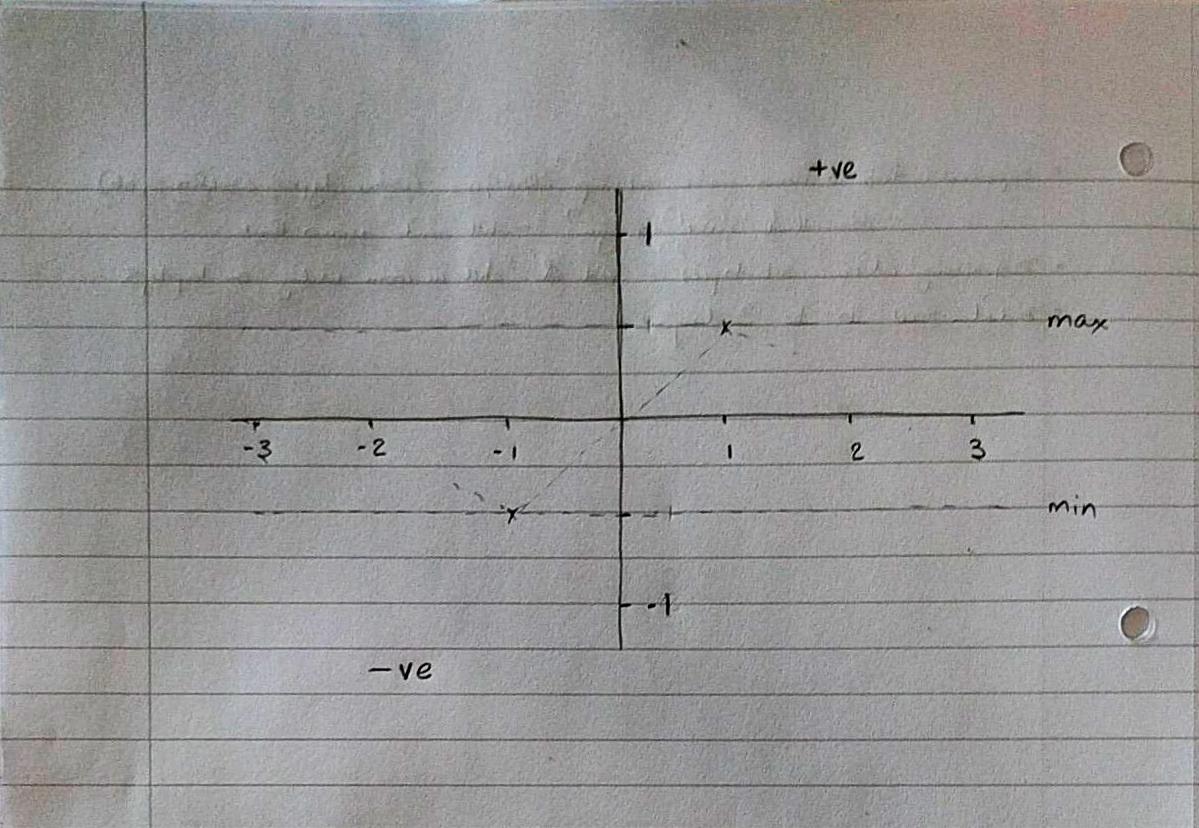 +ve
1
max
-3 -2 -1 1 2 3
min
-1
-ve